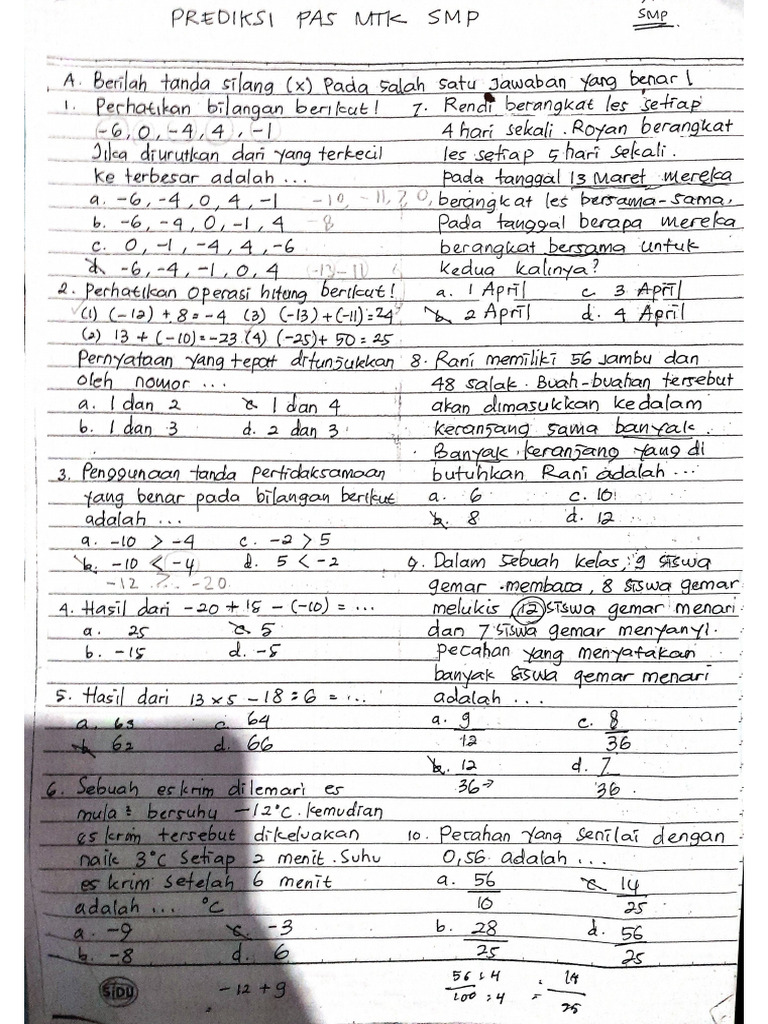 PREDIKSI PAS MTK SMP
SMP
A. Berilah tanda silang (x) Pada salah satu jawaban yang benar!
1. Perhatikan bilangan berikut!
-6, 0, -4, 4, -1
Jika diurutkan dari yang terkecil
ke terbesar adalah ...
a. -6, -4, 0, 4, -1
b. -6, -4, 0, -1, 4
c. 0, -1, -4, 4, -6
d. -6, -4, -1, 0, 4
2. Perhatikan operasi hitung berikut!
(1) (-12) + 8 = -4 (3) (-13) + (-11) = 24
(2) 13 + (-10) = -23 (4) (-25) + 50 = 25
Pernyataan yang tepat ditunjukkan
oleh nomor ...
a. 1 dan 2 c. 1 dan 4
b. 1 dan 3 d. 2 dan 3
3. Penggunaan tanda pertidaksamaan
yang benar pada bilangan berikut
adalah ...
a. -10 > -4 c. -2 > 5
b. -10 < -4 d. 5 < -2
-12 > -20
4. Hasil dari -20 + 15 - (-10) = ...
a. 25 c. 5
b. -15 d. -5
5. Hasil dari 13 x 5 - 18 : 6 = ...
a. 63 c. 64
b. 62 d. 66
6. Sebuah es krim dilemari es
mula² bersuhu -12°C. kemudian
es krim tersebut dikeluakan
naik 3°C Setiap 2 menit. Suhu
es krim setelah 6 menit
adalah ... °C
a. -9 c. -3
b. -8 d. 6
SIDU
-12 + 9
=
7. Rendi berangkat les setiap
4 hari sekali. Royan berangkat
les setiap 5 hari sekali.
Pada tanggal 13 Maret mereka
berangkat les bersama-sama.
Pada tanggal berapa mereka
berangkat bersama untuk
kedua kalinya?
a. 1 April c. 3 April
b. 2 April d. 4 April
8. Rani memiliki 56 Jambu dan
48 salak. Buah-buahan tersebut
akan dimasukkan kedalam
keranjang sama banyak.
Banyak keranjang yang di
butuhkan Rani adalah ...
a. 6 c. 10
b. 8 d. 12
9. Dalam sebuah kelas, 9 siswa
gemar membaca, 8 siswa gemar
melukis 12 siswa gemar menari
dan 7 siswa gemar menyanyi.
Pecahan yang menyatakan
banyak siswa gemar menari
adalah ...
a. 9/12 c. 8/36
b. 12/36 d. 7/36
10. Pecahan yang senilai dengan
0,56 adalah ...
a. 56/10 c. 14/25
b. 28/25 d. 56/25
56 : 4 / 100 : 4 = 14/25